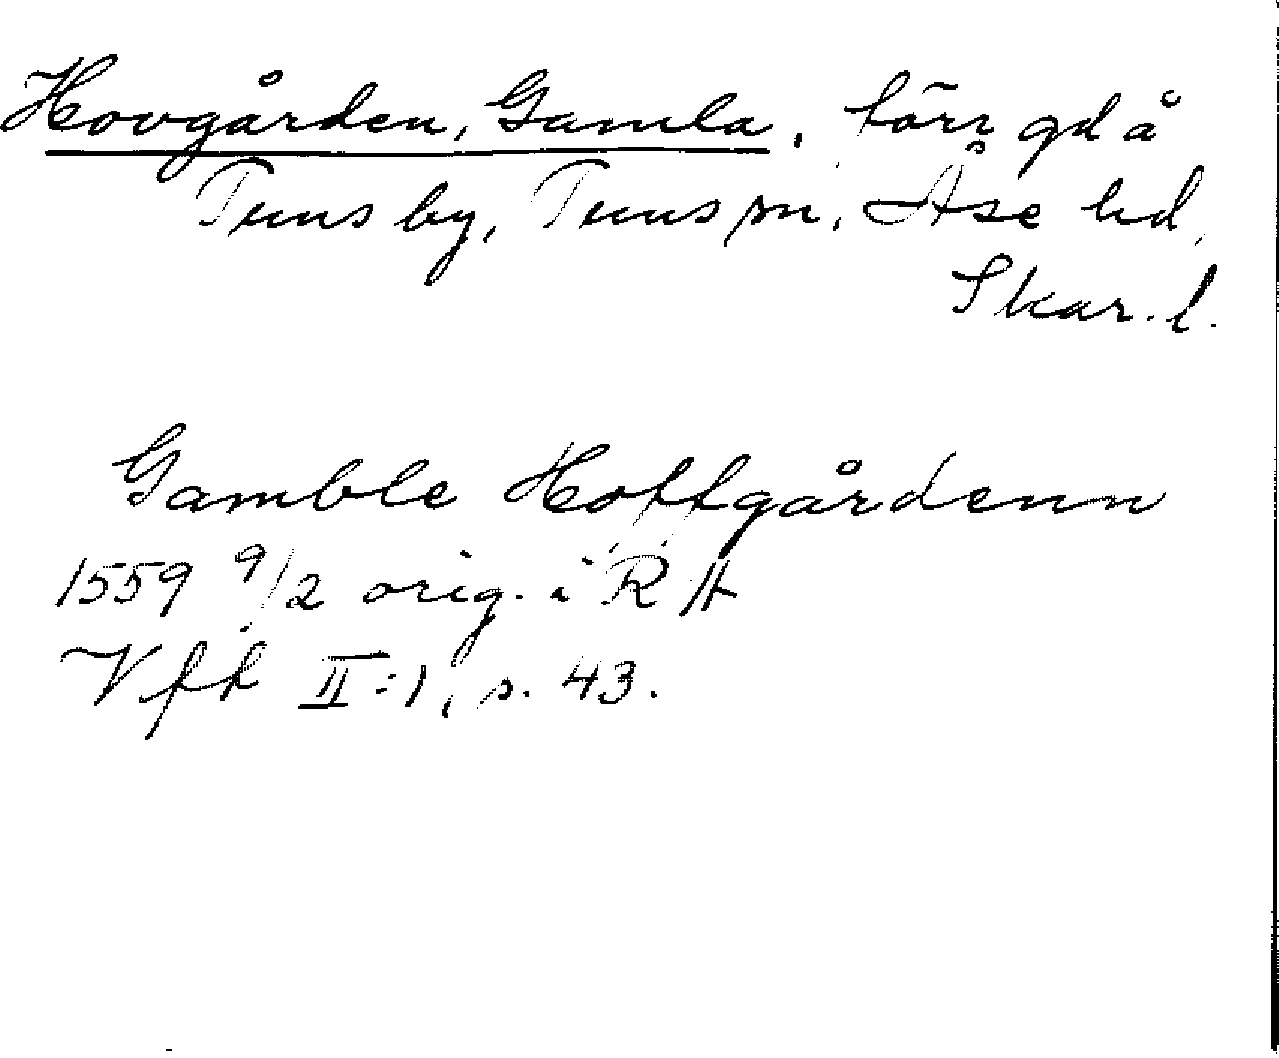 Hovgården, Gamla, förr gd å
Tuns by, Tuns sn, Åse hd,
Skar. l.
Gamble Hoffgårdenn
1559 9/2 orig. i RA
Vff II:1, s. 43.